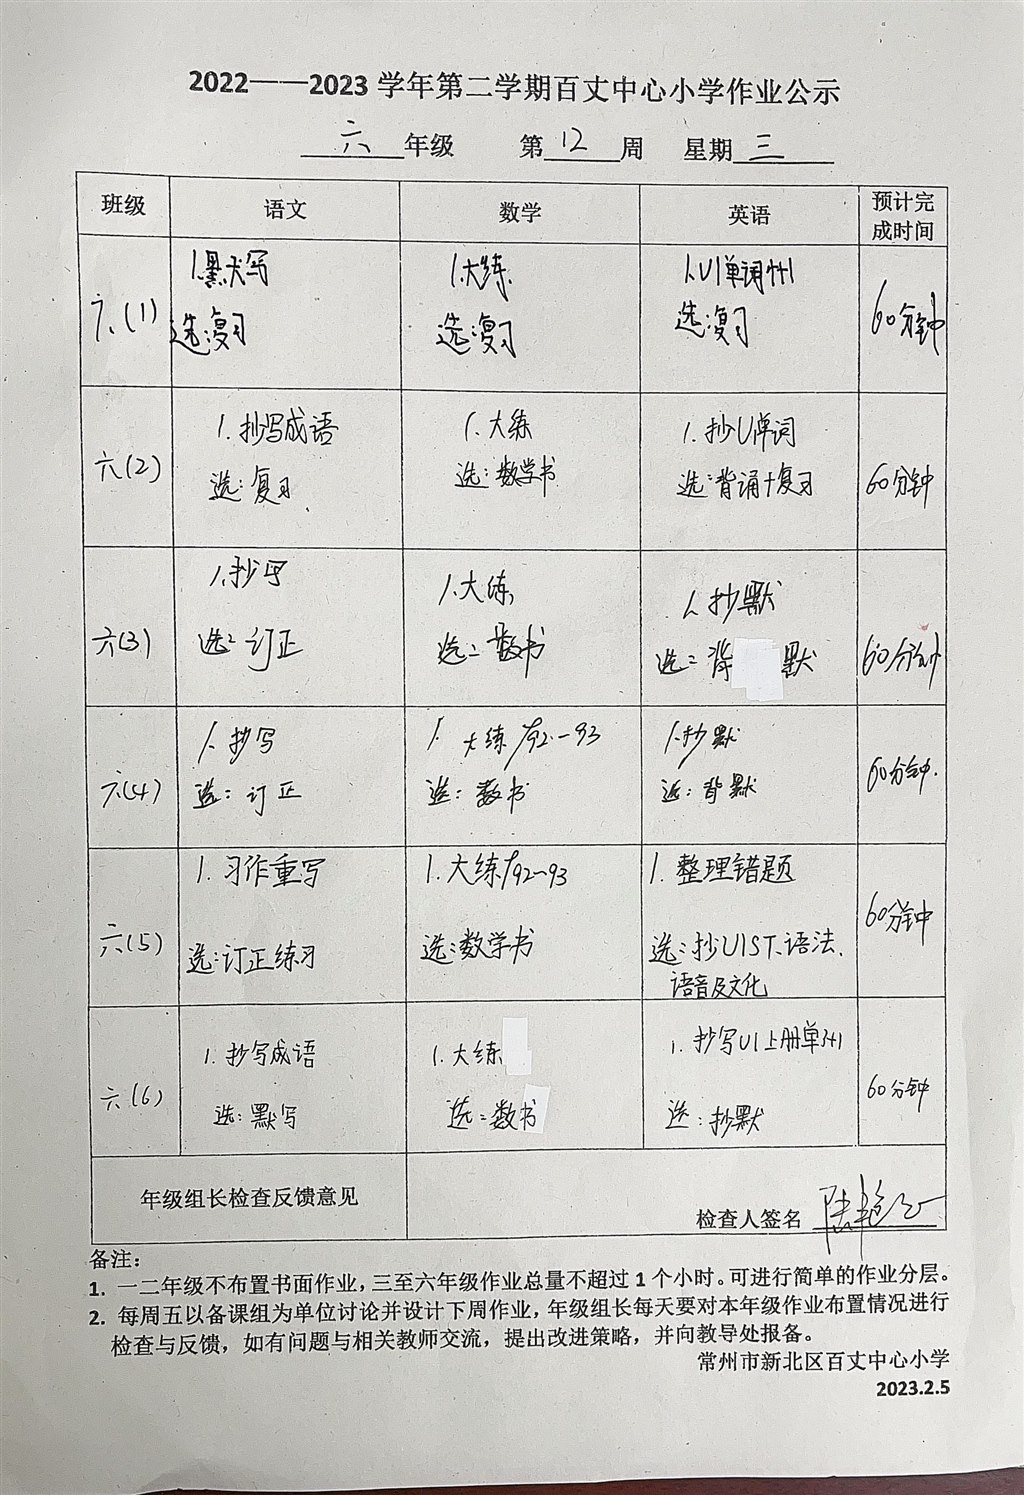 2022——2023 学年第二学期百丈中心小学作业公示
六 年级 第 12 周 星期 三
班级 语文 数学 英语 预计完成时间
六(1)
1.默写
选:复习
1.大练
选:复习
1.U1单词
选:复习
60分钟
六(2)
1.抄写成语
选:复习
1.大练
选:数学书
1.抄U1单词
选:背诵+复习
60分钟
六(3)
1.抄写
选:订正
1.大练
选:数书
1.抄默
选:背 默
60分钟
六(4)
1.抄写
选:订正
1.大练P92-93
选:数书
1.抄默
选:背默
60分钟.
六(5)
1.习作重写
选:订正练习
1.大练P92~93
选:数学书
1.整理错题
选:抄U1ST、语法、
语音及文化
60分钟
六(6)
1.抄写成语
选:默写
1.大练
选:数书
1.抄写U1上册单
选:抄默
60分钟
年级组长检查反馈意见
检查人签名
备注:
1. 一二年级不布置书面作业,三至六年级作业总量不超过1个小时。可进行简单的作业分层。
2. 每周五以备课组为单位讨论并设计下周作业,年级组长每天要对本年级作业布置情况进行
检查与反馈,如有问题与相关教师交流,提出改进策略,并向教导处报备。
常州市新北区百丈中心小学
2023.2.5